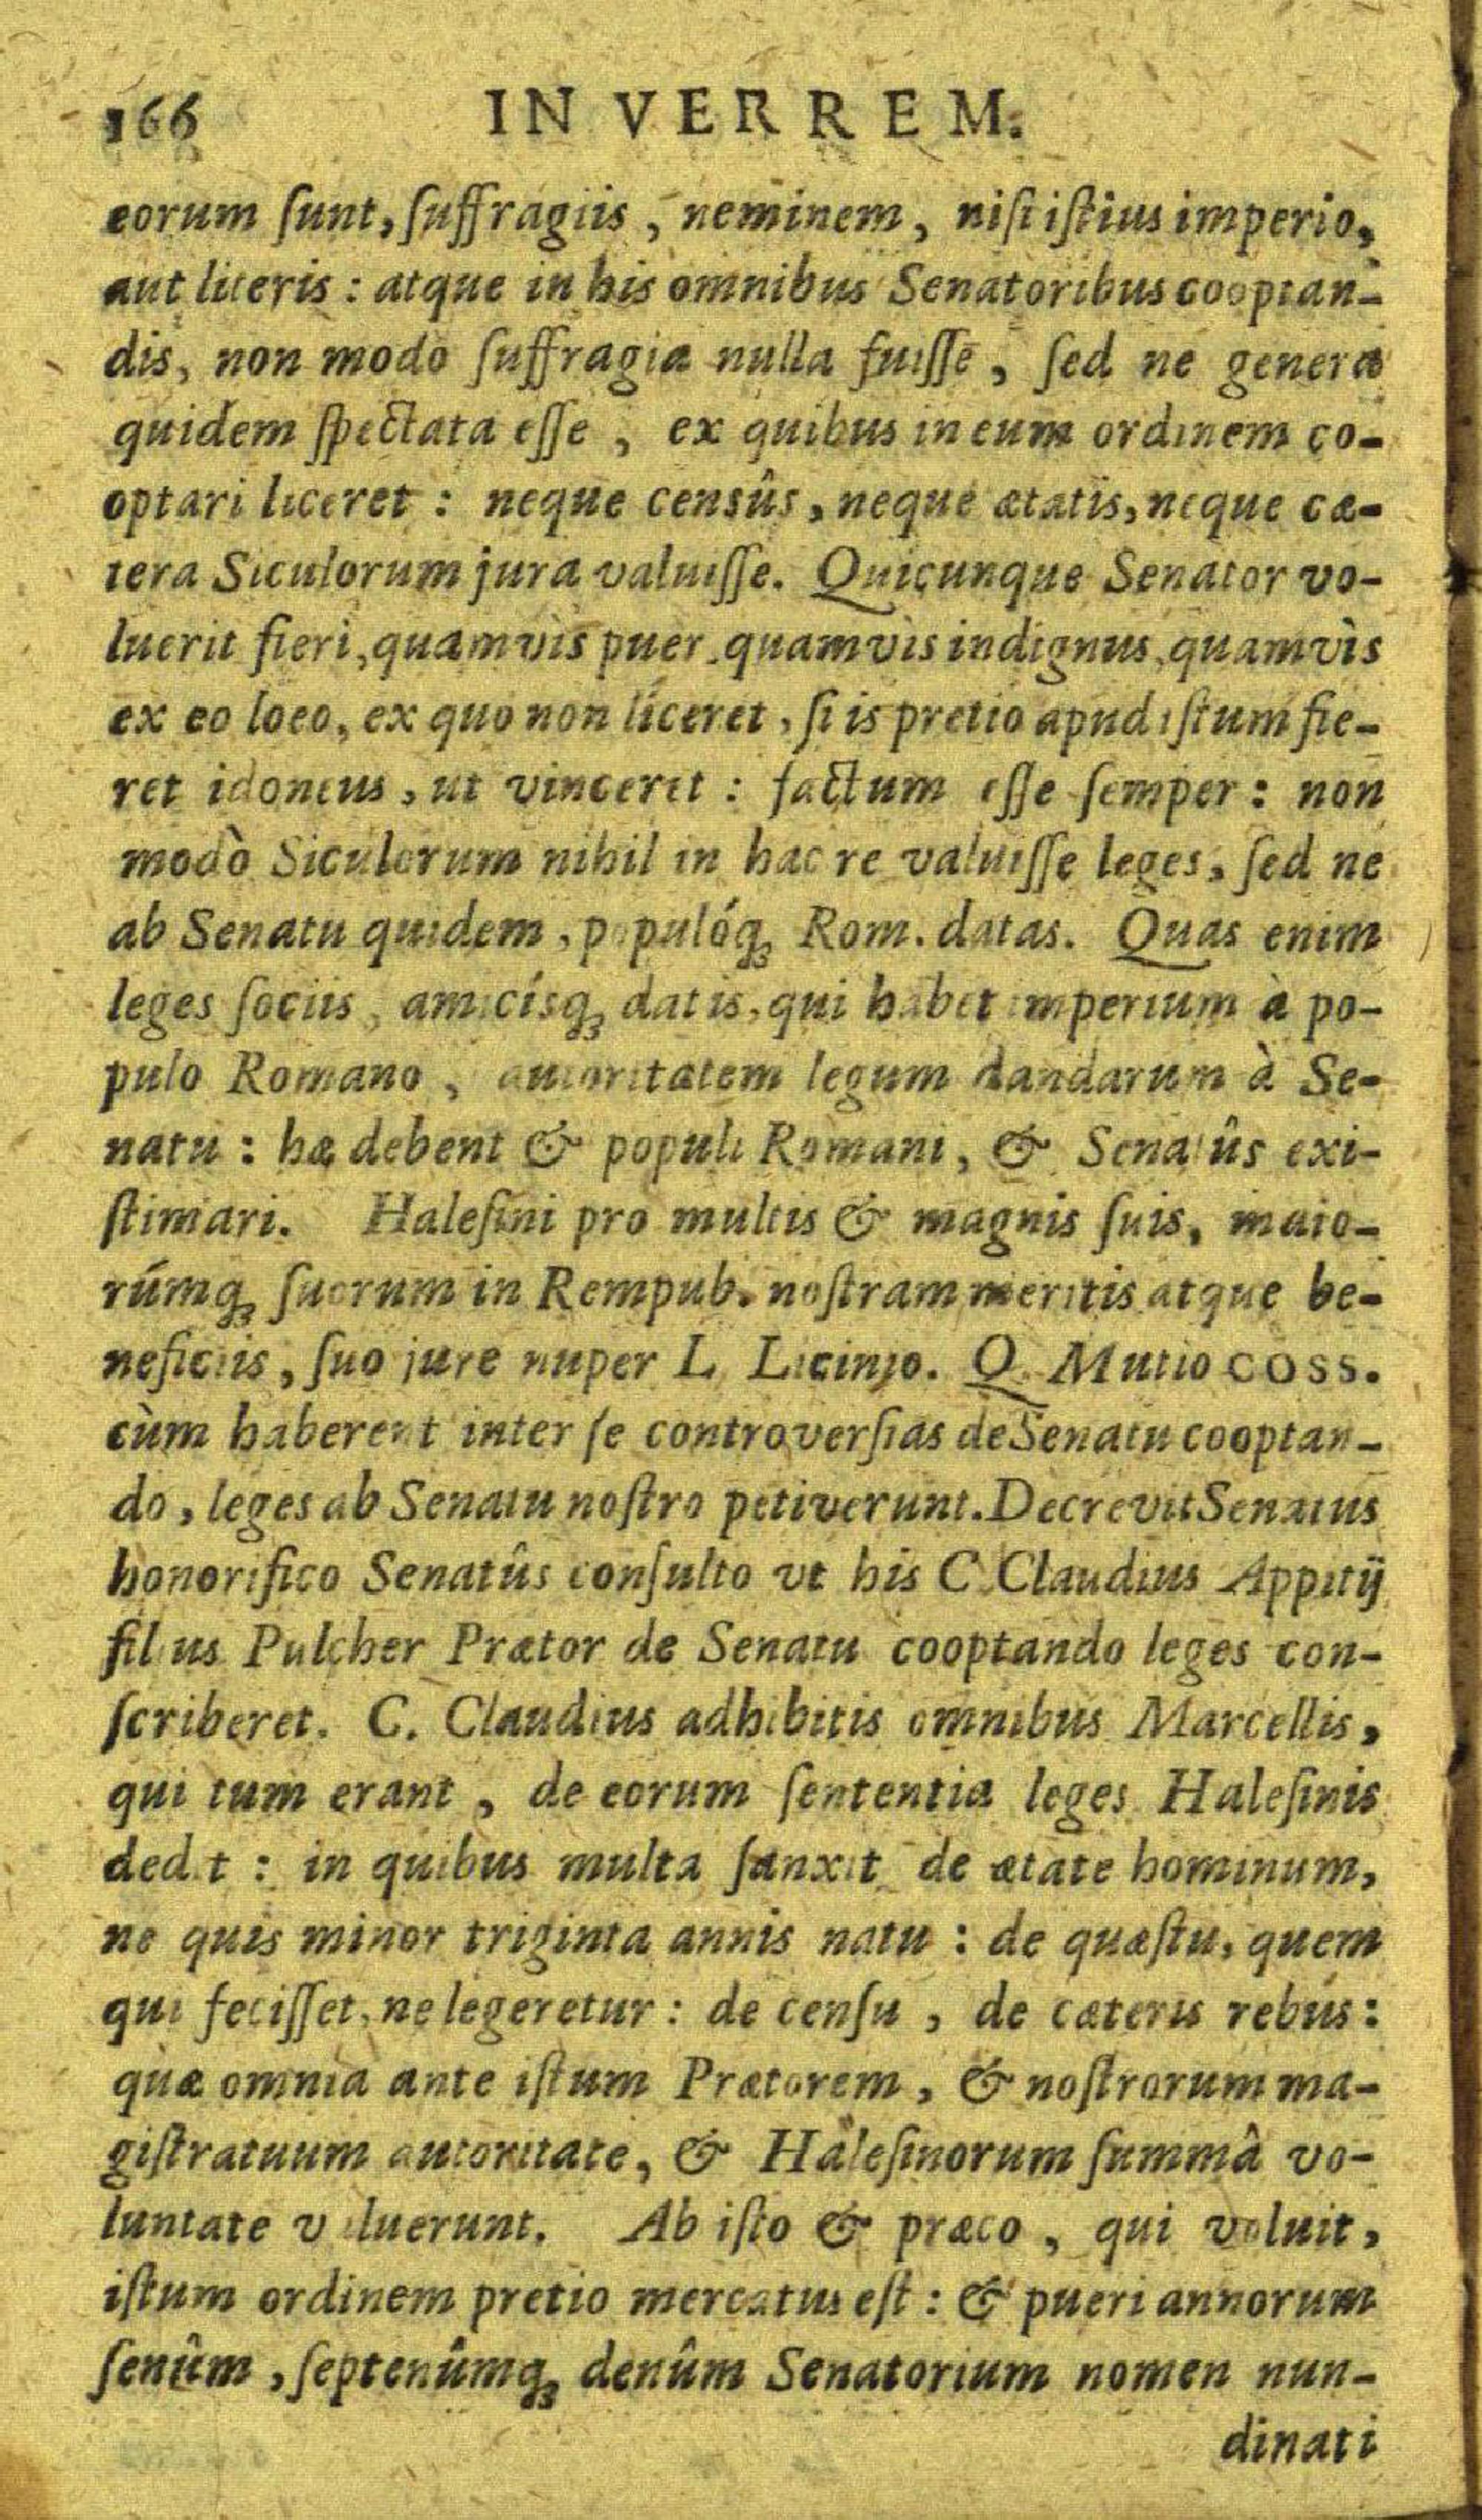 166 IN VERREM.
eorum ſunt, ſuffragiis, neminem, niſi iſtius imperio,
aut literis: atque in his omnibus Senatoribus cooptan-
dis, non modo ſuffragia nulla fuiſſe, ſed ne genera
quidem ſpectata eſſe, ex quibus in eum ordinem co-
optari liceret: neque censûs, neque ætatis, neque cæ-
tera Siculorum jura valuiſſe. Quicunque Senator vo-
luerit fieri, quamvis puer, quamvis indignus, quamvìs
ex eo loco, ex quo non liceret, ſi is pretio apud iſtum fie-
ret idoneus, ut vinceret: factum eſſe ſemper: non
modò Siculorum nihil in hac re valuiſſe leges, ſed ne
ab Senatu quidem, populóq; Rom. datas. Quas enim
leges ſociis, amicíſq; datis, qui habet imperium à po-
pulo Romano, autoritatem legum dandarum à Se-
natu: hæ debent & populi Romani, & Senatûs exi-
ſtimari. Haleſini pro multis & magnis ſuis, maio-
rúmq; ſuorum in Rempub. noſtram meritis atque be-
neficiis, ſuo jure nuper L. Licinio. Q. Mutio COSS.
cùm haberent inter ſe controverſias de Senatu cooptan-
do, leges ab Senatu noſtro petiverunt. Decrevit Senatus
honorifico Senatûs conſulto ut his C. Claudius Appitij
filius Pulcher Prætor de Senatu cooptando leges con-
ſcriberet. C. Claudius adhibitis omnibus Marcellis,
qui tum erant, de eorum ſententia leges Haleſinis
dedit: in quibus multa ſanxit de ætate hominum,
ne quis minor triginta annis natu: de quæſtu, quem
qui feciſſet, ne legeretur: de cenſu, de cæteris rebus:
quæ omnia ante iſtum Prætorem, & noſtrorum ma-
giſtratuum autoritate, & Haleſinorum ſummâ vo-
luntate valuerunt. Ab iſto & præco, qui voluit,
iſtum ordinem pretio mercatus eſt: & pueri annorum
ſenûm, ſeptenûmq; denûm Senatorium nomen nun-
dinati